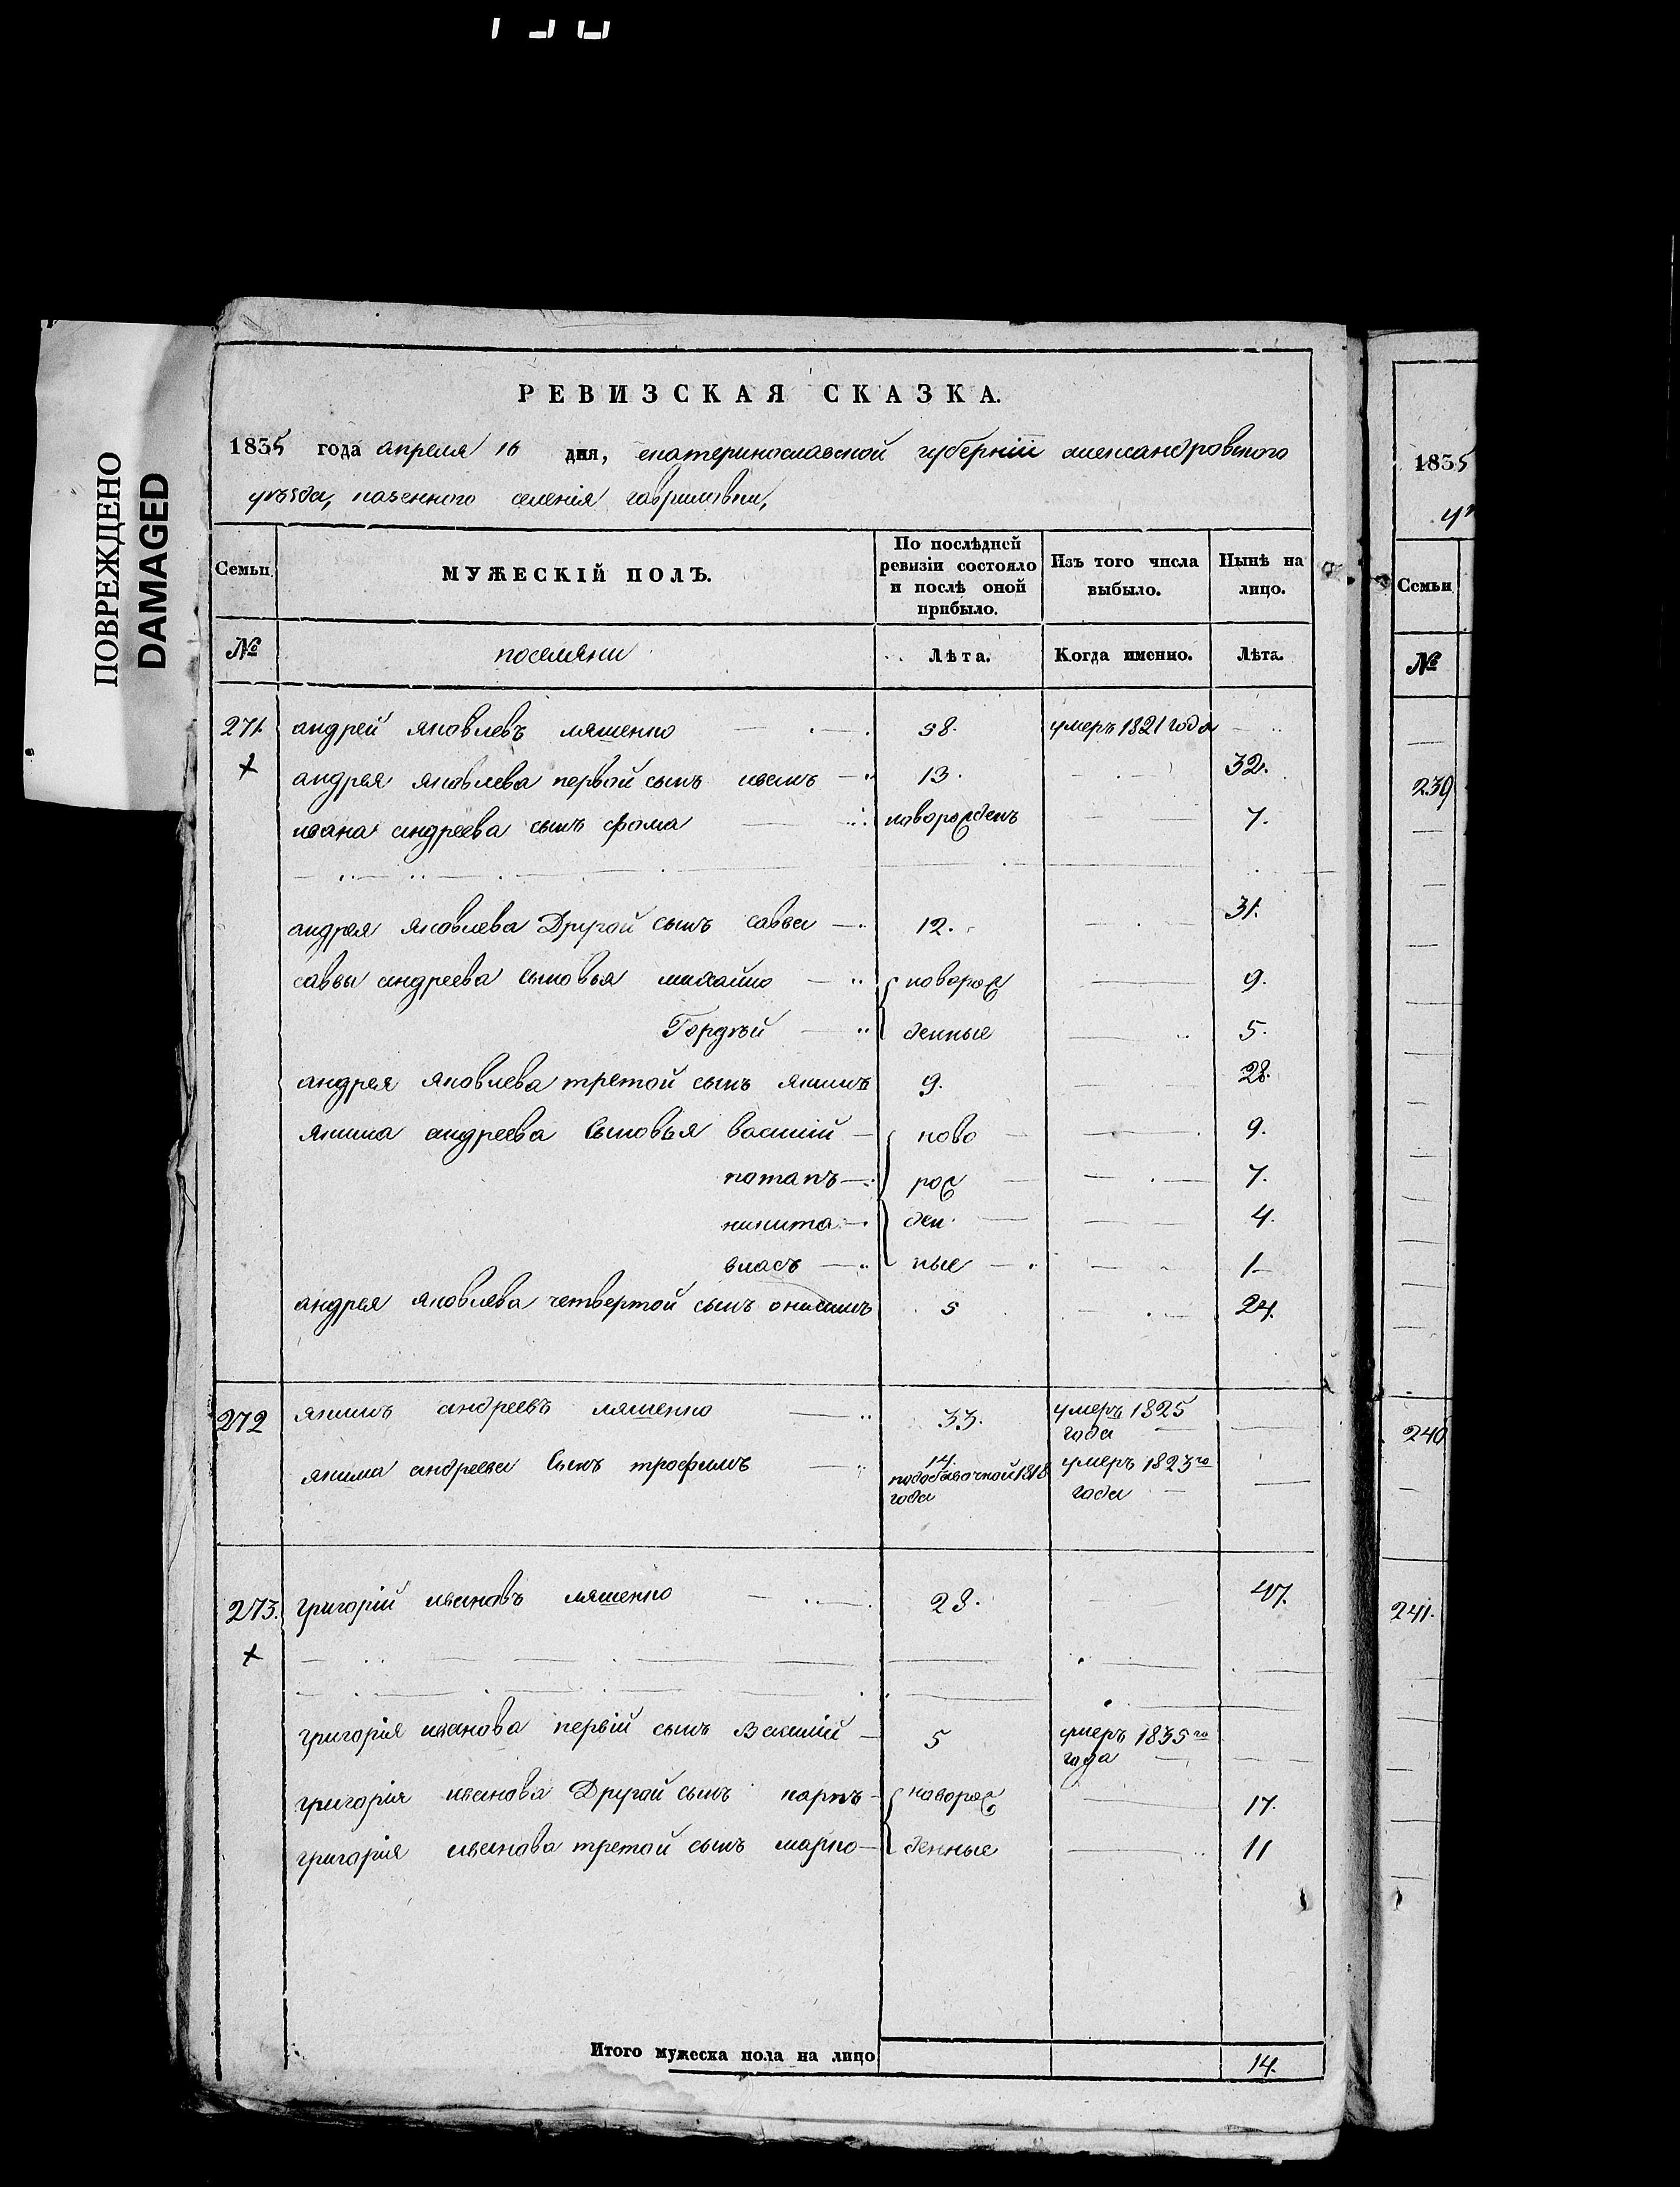 ПОВРЕЖДЕНО
DAMAGED
РЕВИЗСКАЯ СКАЗКА.
1835 года апреля 16 дня, екатеринославской губернiи александровского
уѣзда, казенного селенiя гавриловки,
Семьи
МУЖЕСКIЙ ПОЛЪ.
По послѣдней ревизiи состояло и послѣ оной прибыло.
Изъ того числа выбыло.
Нынѣ на лицо.
№ поселяни Лѣта. Когда именно. Лѣта.
271. андрей яковлевъ ляшенко 38. умеръ 1821 года
+ андрея яковлева первой сынъ иванъ 13. 32.
ивана андреева сынъ фома новорожденъ 7.
андрея яковлева Другой сынъ савва 12. 31.
саввы андреева сыновья михайло новорож 9.
Гордѣй денные 5.
андрея яковлева третой сынъ якимъ 9. 28.
якима андреева Сыновья василiй ново 9.
потапъ рож 7.
никита ден 4.
власъ ные 1
андрея яковлева четвертой сынъ онисимъ 5 24.
272 якимъ андреевъ ляшенко 33. умеръ 1825
года
якима андреева Сынъ трофимъ 14. умеръ 1823го
подобавочной 1818 года
года
273. григорiй ивановъ ляшенко 28. 47.
+
григорiя иванова первiй сынъ Василiй 5 умеръ 1835го
года
григорiя иванова Другой сынъ карпъ новорож 17.
григорiя иванова третой сынъ марко денные 11
Итого мужеска пола на лицо 14.
1835
Семьи
№
239
240
241.